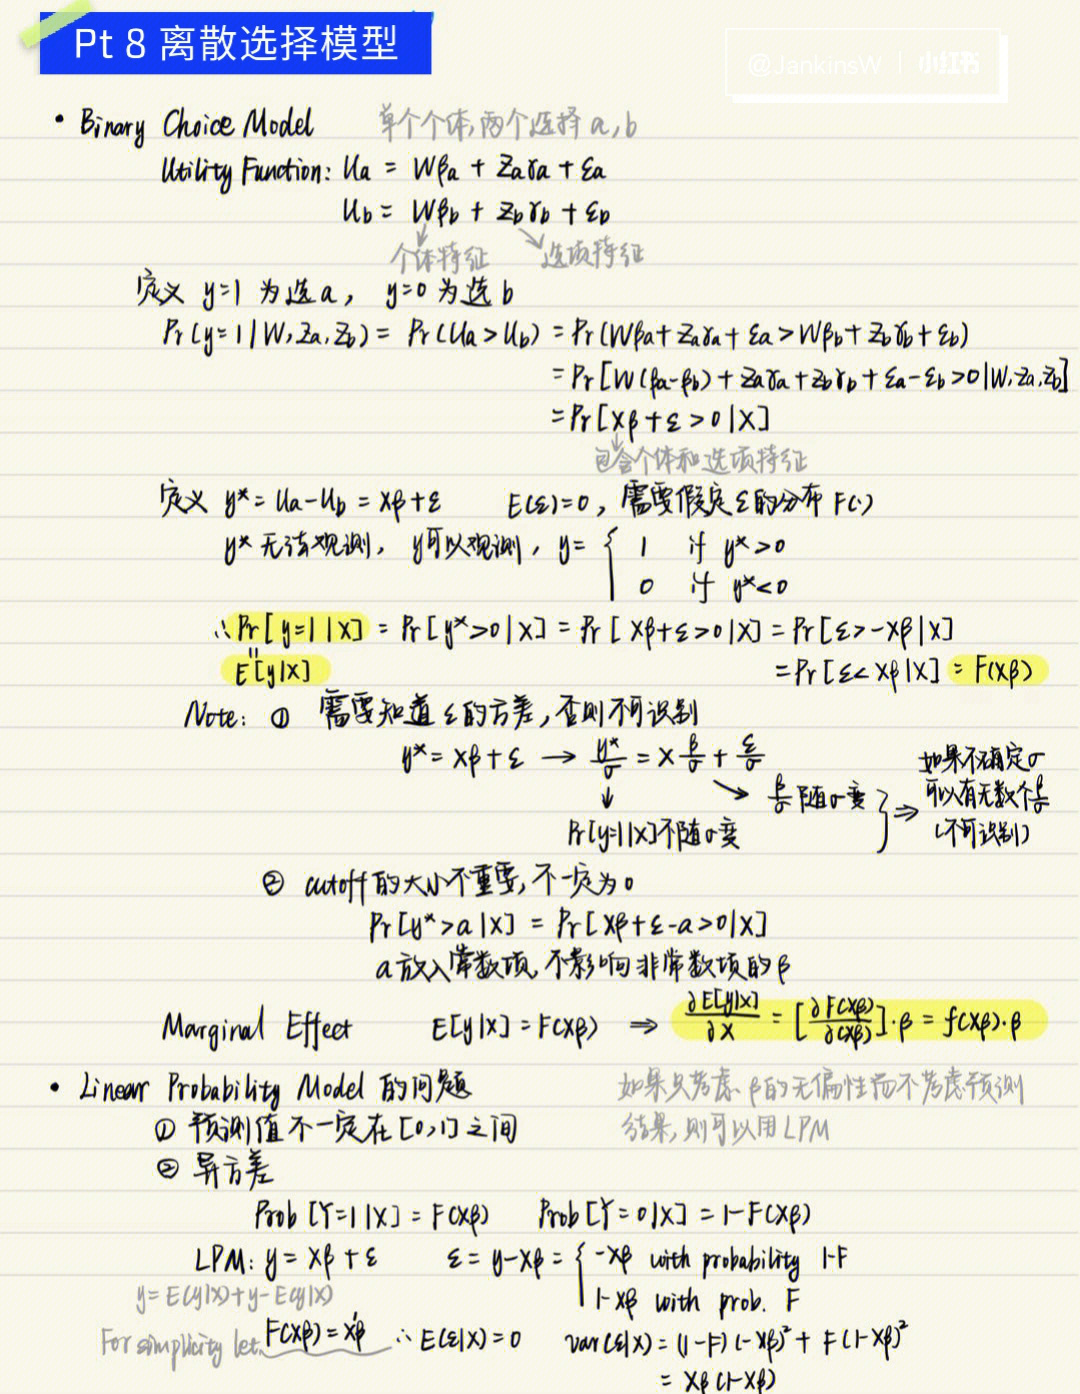 Pt 8 离散选择模型
@JankinsW | 小红书
• Binary Choice Model 单个个体,两个选择 a,b
Utility Function: Ua = Wβa + Zaγa + εa
Ub = Wβb + Zbγb + εb
个体特征 选项特征
定义 y=1 为选a, y=0 为选b
Pr(y=1|W,Za,Zb) = Pr(Ua>Ub) = Pr(Wβa+Zaγa+εa>Wβb+Zbγb+εb)
=Pr[W(βa-βb)+Zaγa+Zbγb+εa-εb>0|W,Za,Zb]
=Pr[Xβ+ε>0|X]
包含个体和选项特征
定义 y*=Ua-Ub=Xβ+ε E(ε)=0, 需要假定ε的分布 F(·)
y* 无法观测, y可以观测, y= { 1 if y*>0
0 if y*<0
∴Pr[y=1|X] = Pr[y*>0|X] = Pr[Xβ+ε>0|X] = Pr[ε>-Xβ|X]
"
E[y|X] =Pr[ε<Xβ|X] = F(Xβ)
Note: ① 需要知道ε的方差,否则不可识别
y*=Xβ+ε → y*/σ = X β/σ + ε/σ 如果不确定σ
↓ ↘ β/σ 随σ变 } ⇒ 可以有无数个β/σ
Pr[y=1|X]不随σ变 (不可识别)
② cutoff的大小不重要,不一定为0
Pr[y*>a|X] = Pr[Xβ+ε-a>0|X]
a放入常数项,不影响非常数项的β
Marginal Effect E[y|X]=F(Xβ) ⇒ ∂E[y|X]/∂X = [∂F(Xβ)/∂(Xβ)]·β = f(Xβ)·β
• Linear Probability Model 的问题 如果只考虑β的无偏性而不考虑预测
① 预测值不一定在[0,1]之间 结果,则可以用LPM
② 异方差
Prob[Y=1|X]=F(Xβ) Prob[Y=0|X]=1-F(Xβ)
LPM: y=Xβ+ε ε=y-Xβ= { -Xβ with probability 1-F
y=E(y|X)+y-E(y|X) 1-Xβ with prob. F
For simplicity let F(Xβ)=X'β ∴E(ε|X)=0 var(ε|X)=(1-F)(-Xβ)²+F(1-Xβ)²
= Xβ(1-Xβ)